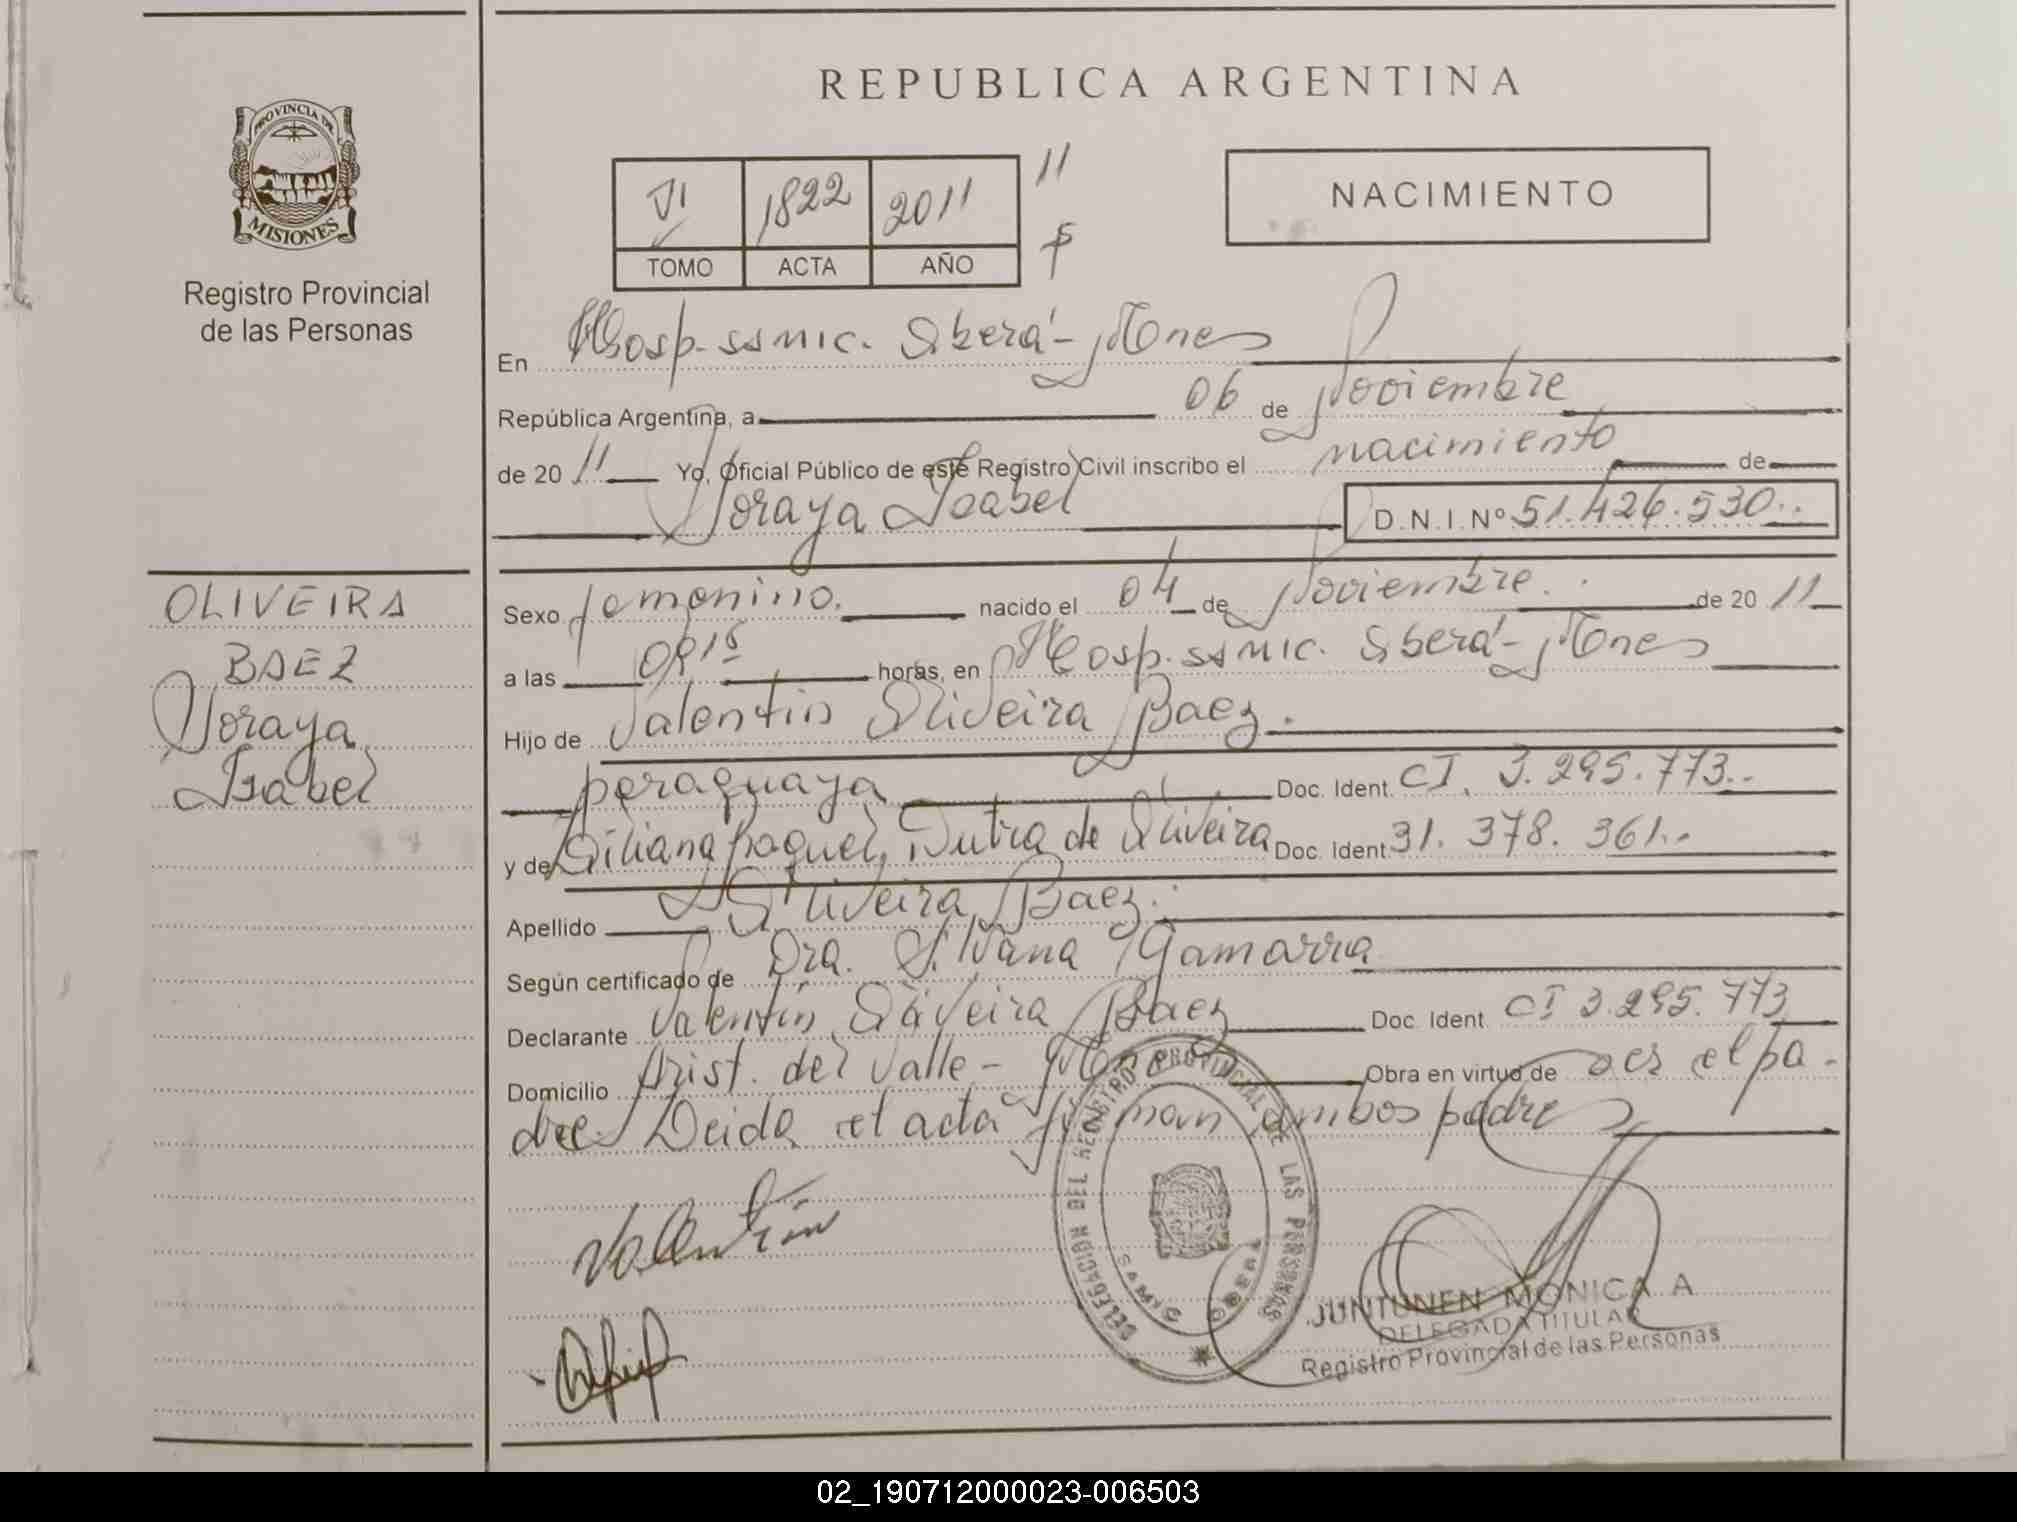 REPUBLICA ARGENTINA
PROVINCIA DE
MISIONES
Registro Provincial
de las Personas
VI 1822 2011 11
TOMO ACTA AÑO
NACIMIENTO
En Hosp. ssmic. Oberá - Mnes
República Argentina, a 06 de Noviembre
de 20 11 Yo, Oficial Público de este Registro Civil inscribo el nacimiento de
Soraya Isabel D.N.I. Nº 51.426.530..
OLIVEIRA
BAEZ
Soraya
Isabel
Sexo femenino. nacido el 04 de Noviembre. de 20 11
a las 0915 horas, en Hosp. ssmic. Oberá - Mnes
Hijo de Valentin Oliveira Baez.
paraguaya Doc. Ident. CI. 3.295.773..
y de Liliana Raquel Dutra de Oliveira Doc. Ident. 31.378.361..
Apellido Oliveira Baez.
Según certificado de Dra. Silvana Gamarra
Declarante Valentin Oliveira Baez Doc. Ident. CI 3.295.773
Domicilio Arist. del Valle - Mnes Obra en virtud de ser el pa-
dre. Leida el acta firman ambos padres
Valentin
DELEGACION DEL REGISTRO PROVINCIAL DE LAS PERSONAS
JUNTUNEN MONICA A
DELEGADA TITULAR
Registro Provincial de las Personas
02_190712000023-006503